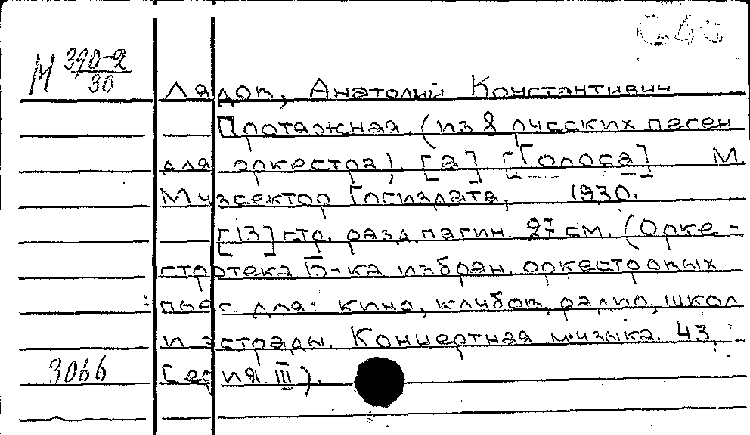 М 390-2
30
Лядов, Анатолий Константинович
Протяжная. (из 8 русских песен
для оркестра). [а] [Голоса] М.
Музсектор Госиздата, 1930.
[13] стр. разд. пагин. 27 см. (Орке-
стротека Б-ка избран. оркестровых
пьес для: кино, клубов, радио, школ
и эстрады. Концертная музыка. 43.
3066 Серия III).